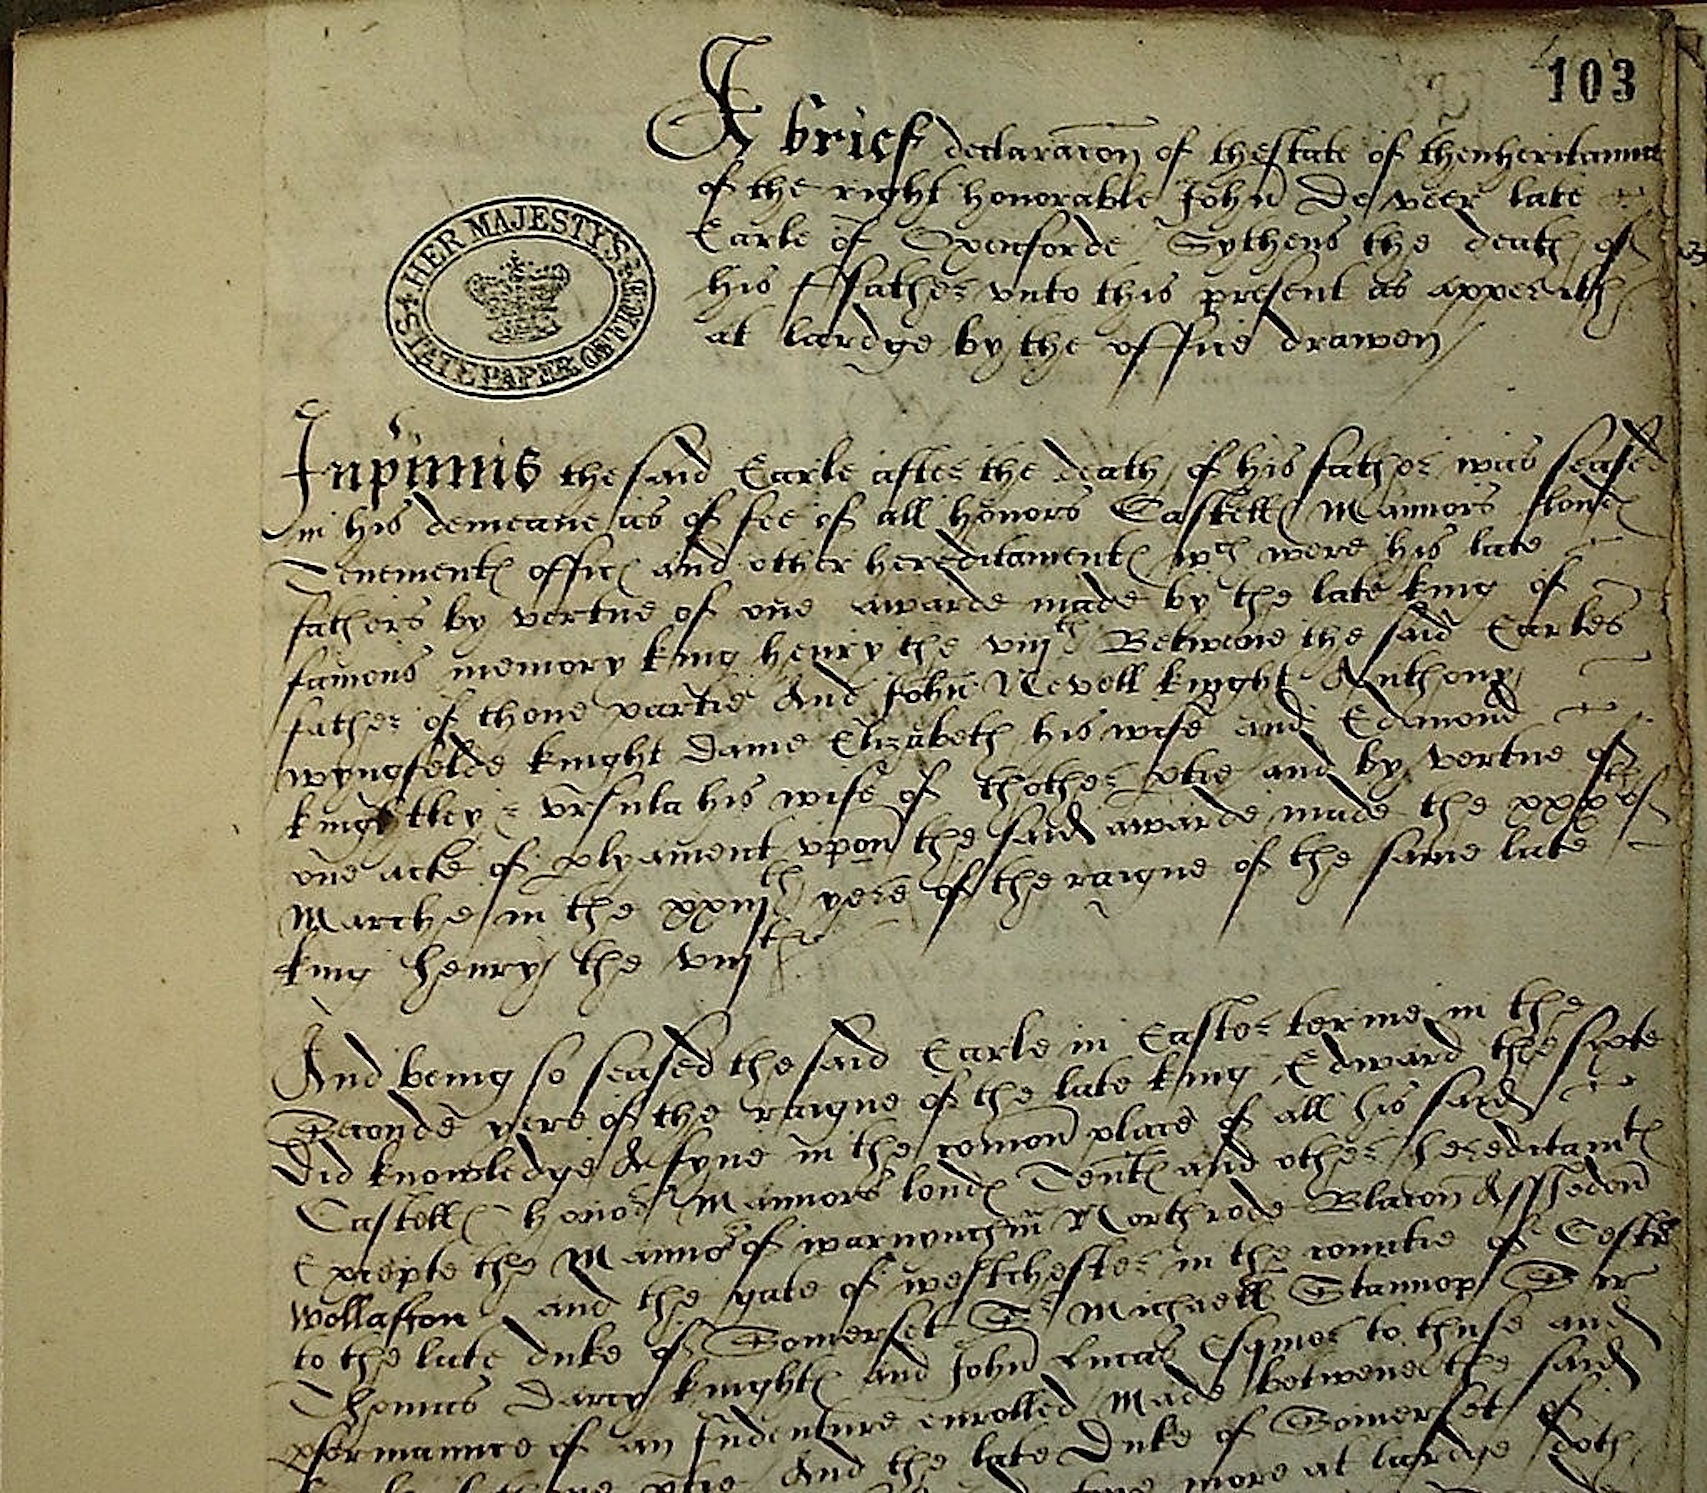 103
HER MAJESTY'S
STATE PAPER OFFICE
A brief declaracion of thestate of thenheritaunce
of the right honorable John De veer late
Earle of Oxenforde Sythens the death of
his ffather vnto this present as appereth
at lardge by the office drawen
Inprimis the said Earle after the death of his father was seased
in his demeane as of fee of all honors Castell Mannors londes
Tenementes offices and other hereditamentes wch were his late
fathers by vertue of one awarde made by the late king of
famous memory king henry the viijth Betwene the said Earles
father of thone partie And John Nevell knight Anthony
wyngfelde knight Dame Elizabeth his wife and Edmond
knightley & vrsula his wife of thother ptie and by vertue of
one acte of plyament vpon the said awarde made the xxxth of
Marche in the xxiijth yere of the raigne of the same late
king henry the viijth
And being so seased the said Earle in Easter terme in the
Seconde yere of the raigne of the late king Edward the sixte
did knowledge A fyne in the comon place of all his said
Castells honors Mannors londes Tentes and other hereditamtes
Excepte the Mannors of warnyngham Northrode Blacon Asshedon
wollaston and the gate of westchester in the countie of Cestr
to the late duke of Somerset Sr Michaell Stannop Sir
Thomas Darcy knightes and John Lucas Esquier to thuse and
pformannce of an Indenture enrolled made betwene the said
And the late Duke of Somerset of
more at lardge doth